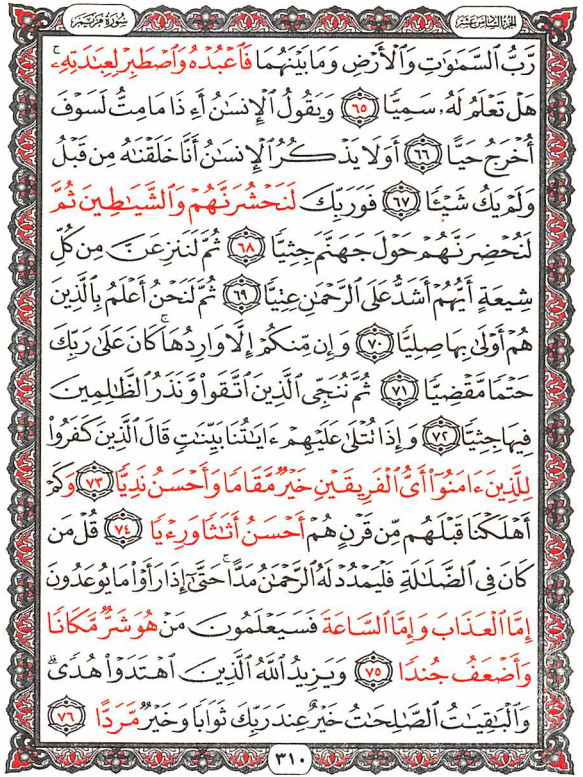 سورة مريم الجزء السادس عشر
رَّبُّ ٱلسَّمَٰوَٰتِ وَٱلْأَرْضِ وَمَا بَيْنَهُمَا فَٱعْبُدْهُ وَٱصْطَبِرْ لِعِبَٰدَتِهِۦ ۚ
هَلْ تَعْلَمُ لَهُۥ سَمِيًّا ٦٥ وَيَقُولُ ٱلْإِنسَٰنُ أَءِذَا مَا مِتُّ لَسَوْفَ
أُخْرَجُ حَيًّا ٦٦ أَوَلَا يَذْكُرُ ٱلْإِنسَٰنُ أَنَّا خَلَقْنَٰهُ مِن قَبْلُ
وَلَمْ يَكُ شَيْـًٔا ٦٧ فَوَرَبِّكَ لَنَحْشُرَنَّهُمْ وَٱلشَّيَٰطِينَ ثُمَّ
لَنُحْضِرَنَّهُمْ حَوْلَ جَهَنَّمَ جِثِيًّا ٦٨ ثُمَّ لَنَنزِعَنَّ مِن كُلِّ
شِيعَةٍ أَيُّهُمْ أَشَدُّ عَلَى ٱلرَّحْمَٰنِ عِتِيًّا ٦٩ ثُمَّ لَنَحْنُ أَعْلَمُ بِٱلَّذِينَ
هُمْ أَوْلَىٰ بِهَا صِلِيًّا ٧٠ وَإِن مِّنكُمْ إِلَّا وَارِدُهَا ۚ كَانَ عَلَىٰ رَبِّكَ
حَتْمًا مَّقْضِيًّا ٧١ ثُمَّ نُنَجِّى ٱلَّذِينَ ٱتَّقَوا۟ وَّنَذَرُ ٱلظَّٰلِمِينَ
فِيهَا جِثِيًّا ٧٢ وَإِذَا تُتْلَىٰ عَلَيْهِمْ ءَايَٰتُنَا بَيِّنَٰتٍ قَالَ ٱلَّذِينَ كَفَرُوا۟
لِلَّذِينَ ءَامَنُوٓا۟ أَىُّ ٱلْفَرِيقَيْنِ خَيْرٌ مَّقَامًا وَأَحْسَنُ نَدِيًّا ٧٣ وَكَمْ
أَهْلَكْنَا قَبْلَهُم مِّن قَرْنٍ هُمْ أَحْسَنُ أَثَٰثًا وَرِءْيًا ٧٤ قُلْ مَن
كَانَ فِى ٱلضَّلَٰلَةِ فَلْيَمْدُدْ لَهُ ٱلرَّحْمَٰنُ مَدًّا ۚ حَتَّىٰٓ إِذَا رَأَوْا۟ مَا يُوعَدُونَ
إِمَّا ٱلْعَذَابَ وَإِمَّا ٱلسَّاعَةَ فَسَيَعْلَمُونَ مَنْ هُوَ شَرٌّ مَّكَانًا
وَأَضْعَفُ جُندًا ٧٥ وَيَزِيدُ ٱللَّهُ ٱلَّذِينَ ٱهْتَدَوْا۟ هُدًى ۗ
وَٱلْبَٰقِيَٰتُ ٱلصَّٰلِحَٰتُ خَيْرٌ عِندَ رَبِّكَ ثَوَابًا وَخَيْرٌ مَّرَدًّا ٧٦
٣١٠